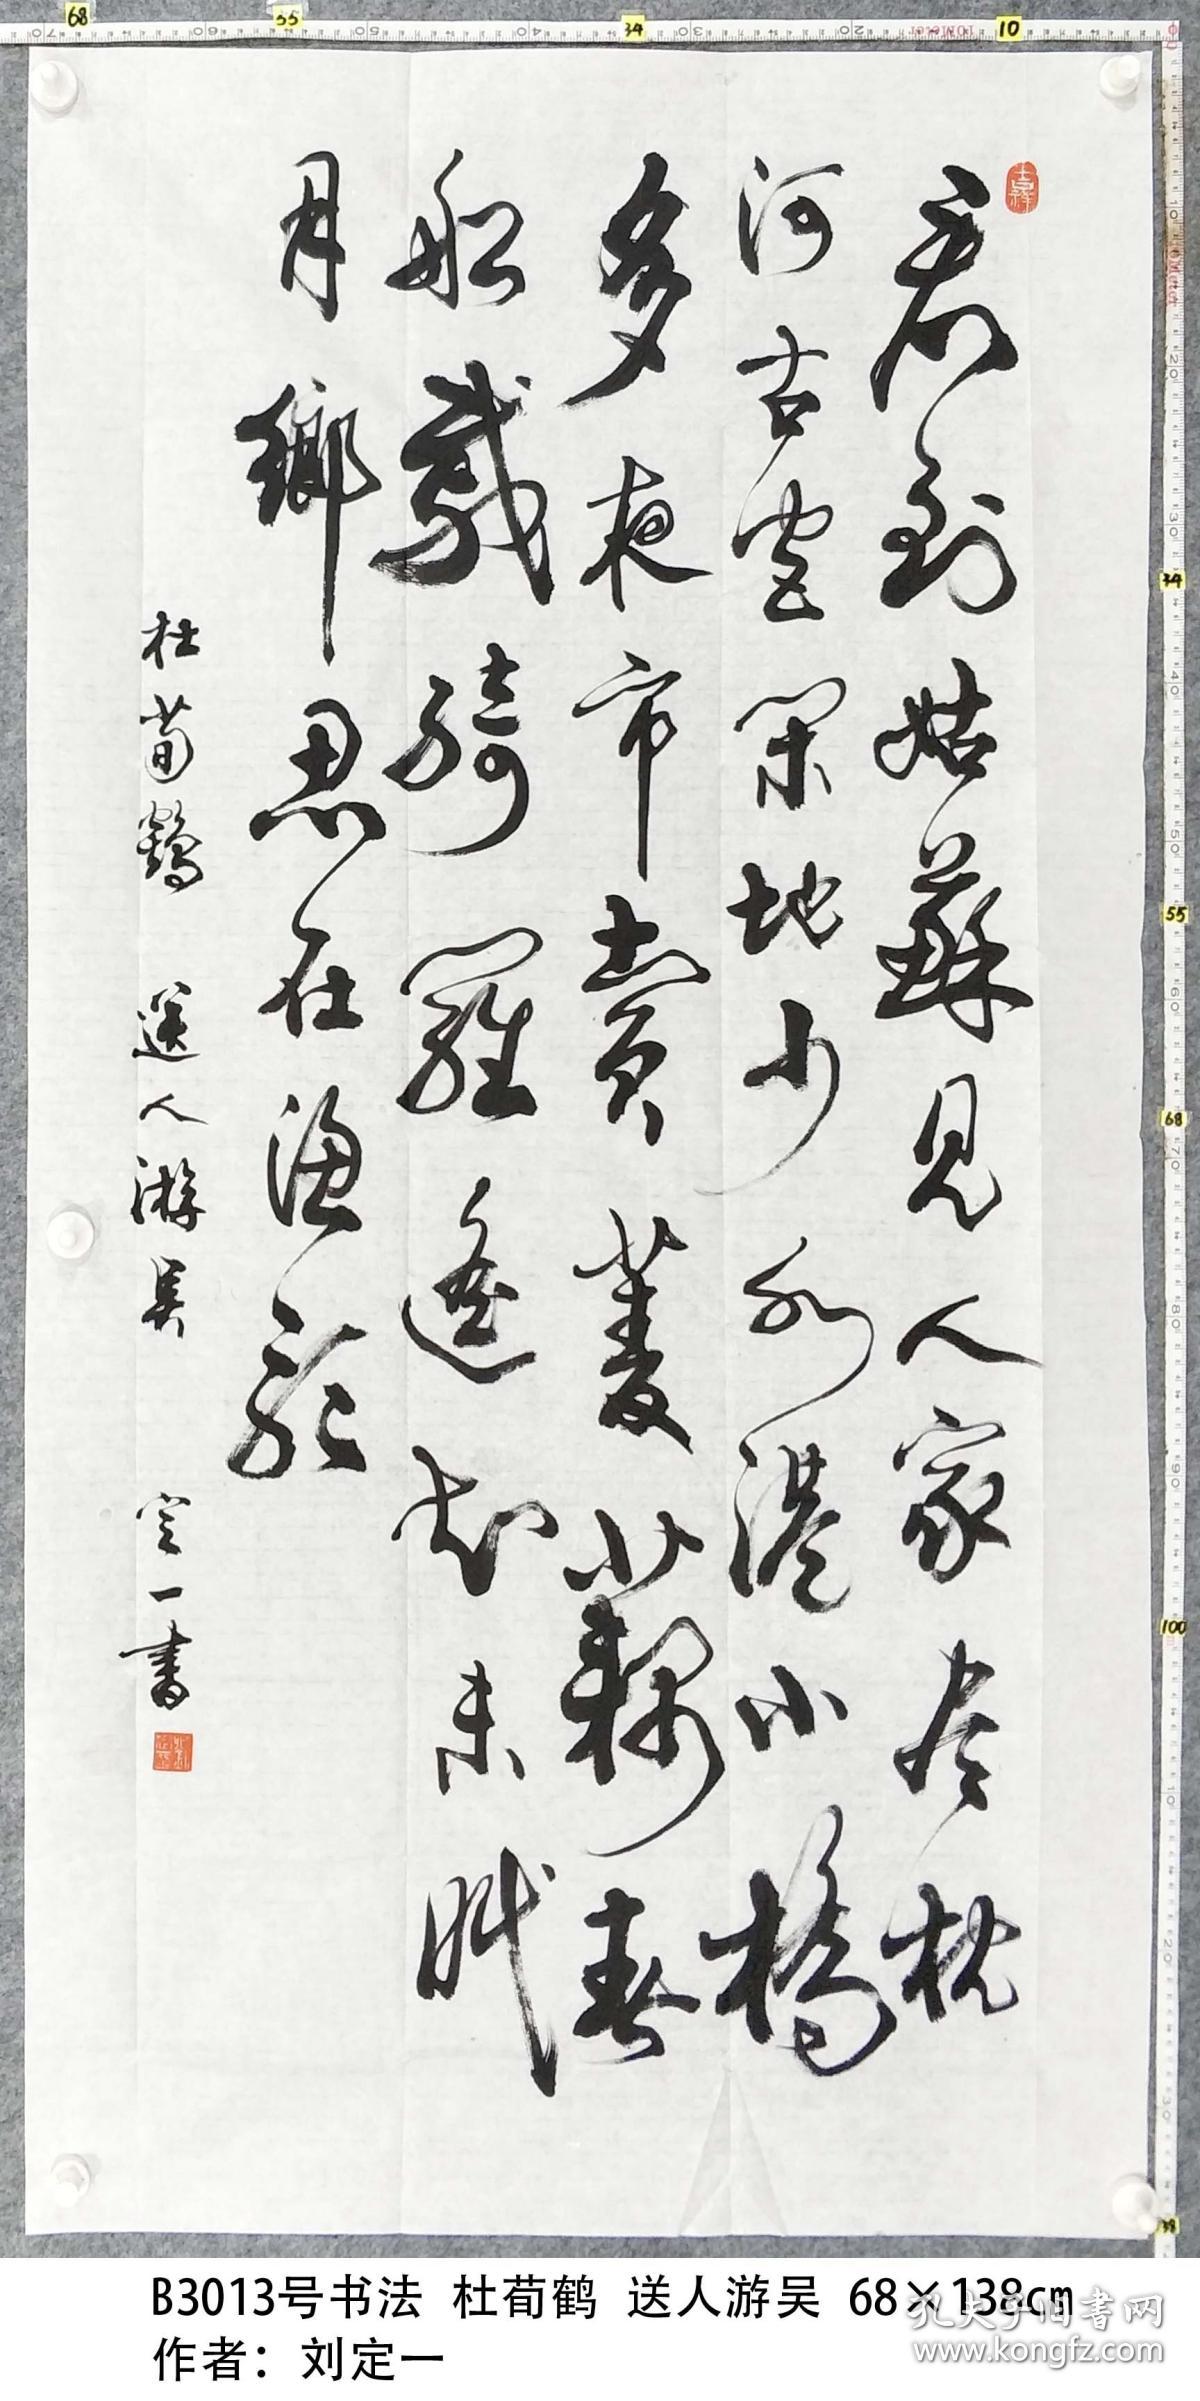 68 55 34 10
君到姑蘇見人家尽枕
河古宮閑地少水港小橋
多夜市賣菱藕春
船載綺羅遙知未眠
月鄉思在漁歌
杜荀鶴 送人游吳 定一書
34
55
68
100
38
B3013号书法 杜荀鹤 送人游吴 68×138cm
作者：刘定一
孔夫子旧书网
www.kongfz.com